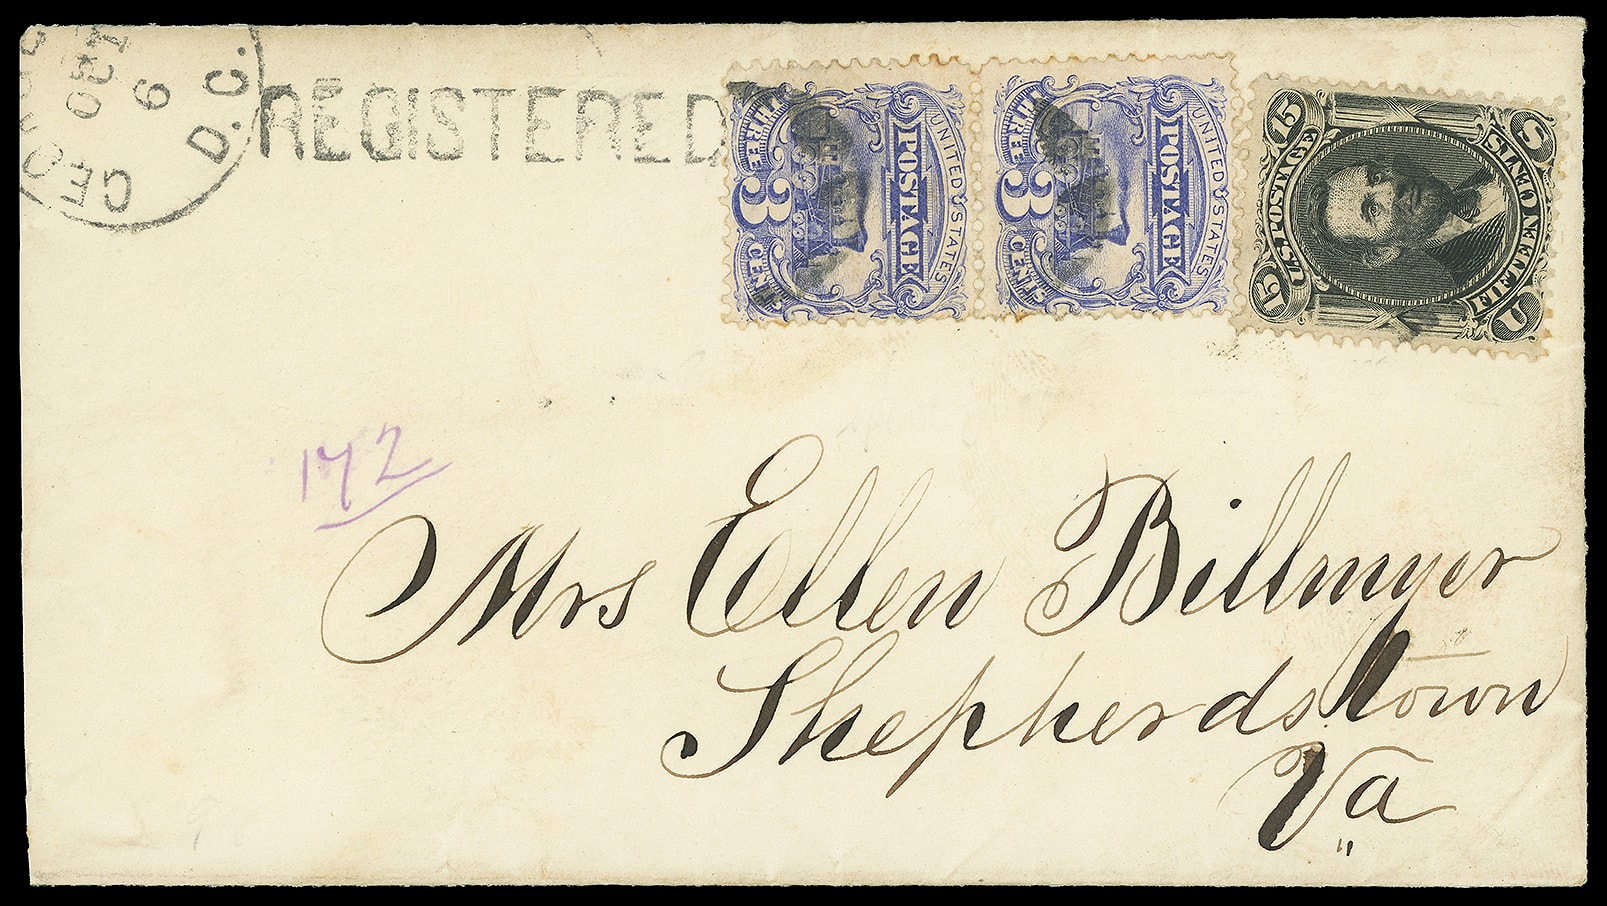 OCT
6
D.C.
REGISTERED
UNITED STATES
POSTAGE
THREE 3 CENTS
UNITED STATES
POSTAGE
THREE 3 CENTS
15 U.S. POSTAGE 15
U FIFTEEN CENTS S
172
Mrs Ellen Billmyer
Shepherdstown
Va